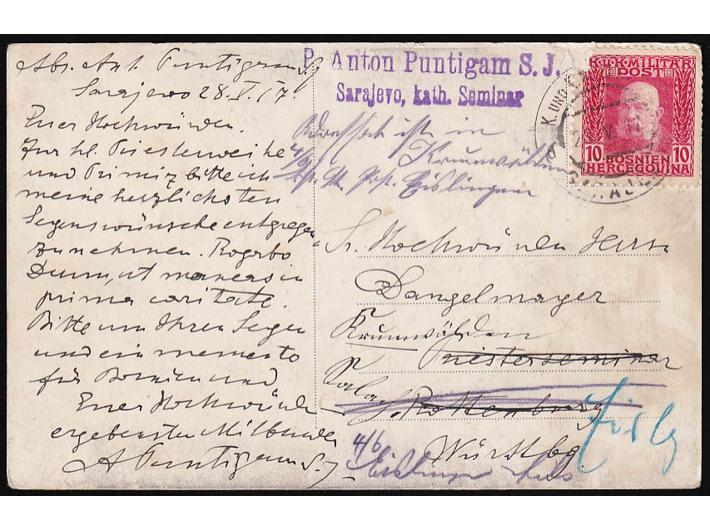 Abs. Ant. Puntigam SJ
Sarajevo 28.V.17
Euer Hochwürden.
Zur hl. Priesterweihe
und Primiz bitte ich
meine herzlichsten
Segenswünsche entgegen
zu nehmen. Rogabo
Deum, ut maneas in
prima caritate.
Bitte um Ihren Segen
und ein memento
für Bosnien und
Euer Hochwürden
ergebensten Mitbruder
A Puntigam S.J
P. Anton Puntigam S.J.
Sarajevo, kath. Seminar
Adressat ist in
Krummwälden
4/6
Eislingen
K.U.K. MILITÄR
POST
10 10
BOSNIEN
HERCEGOVINA
K. UND K.
Sr. Hochwürden Herrn
Dangelmayer
Krummwälden
Priesterseminar
Rottenburg
Württbg.
4/6
Eislingen Fils